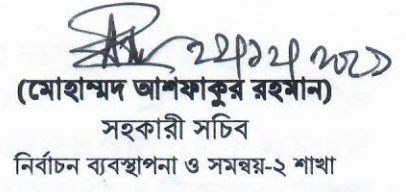 (মোহাম্মদ আশফাকুর রহমান)
সহকারী সচিব
নির্বাচন ব্যবস্থাপনা ও সমন্বয়-২ শাখা